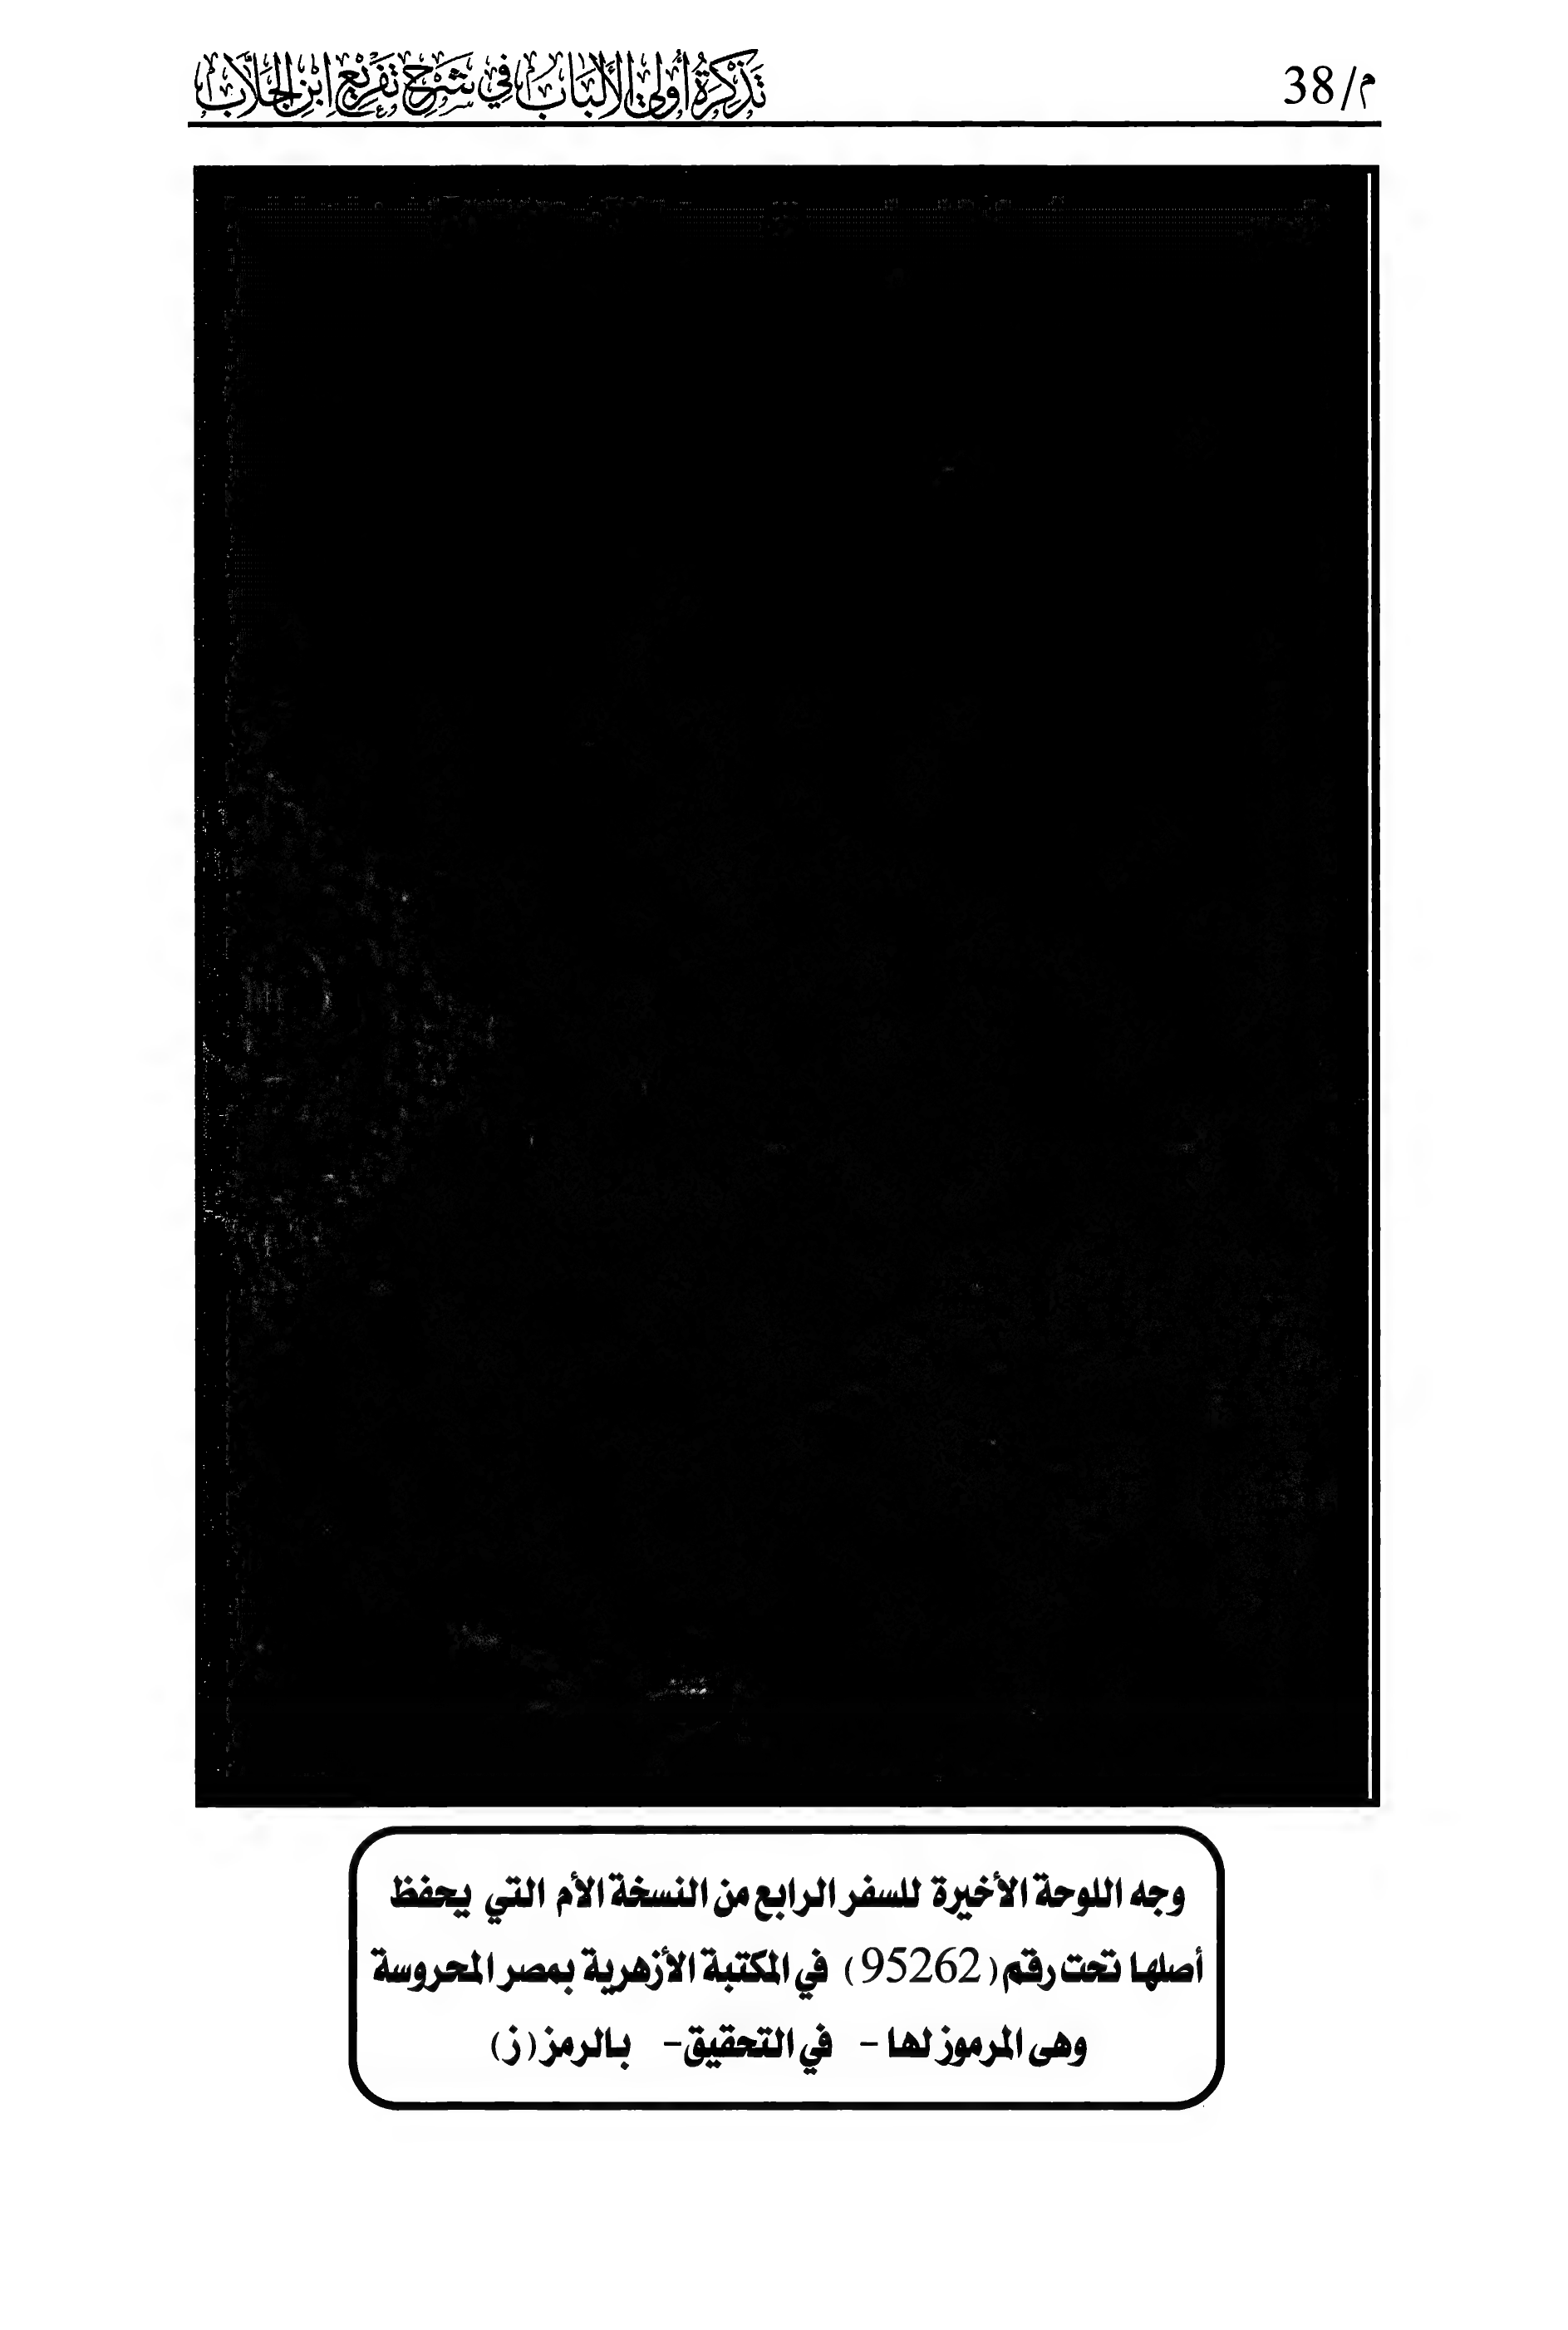 م/38
تَذْكِرَةُ أُولِي الأَلْبَابِ فِي شَرْحِ تَفْرِيعِ ابْنِ الجَلَّابِ
وجه اللوحة الأخيرة للسفر الرابع من النسخة الأم التي يحفظ
أصلها تحت رقم (95262) في المكتبة الأزهرية بمصر المحروسة
وهى المرموز لها - في التحقيق - بالرمز (ز)